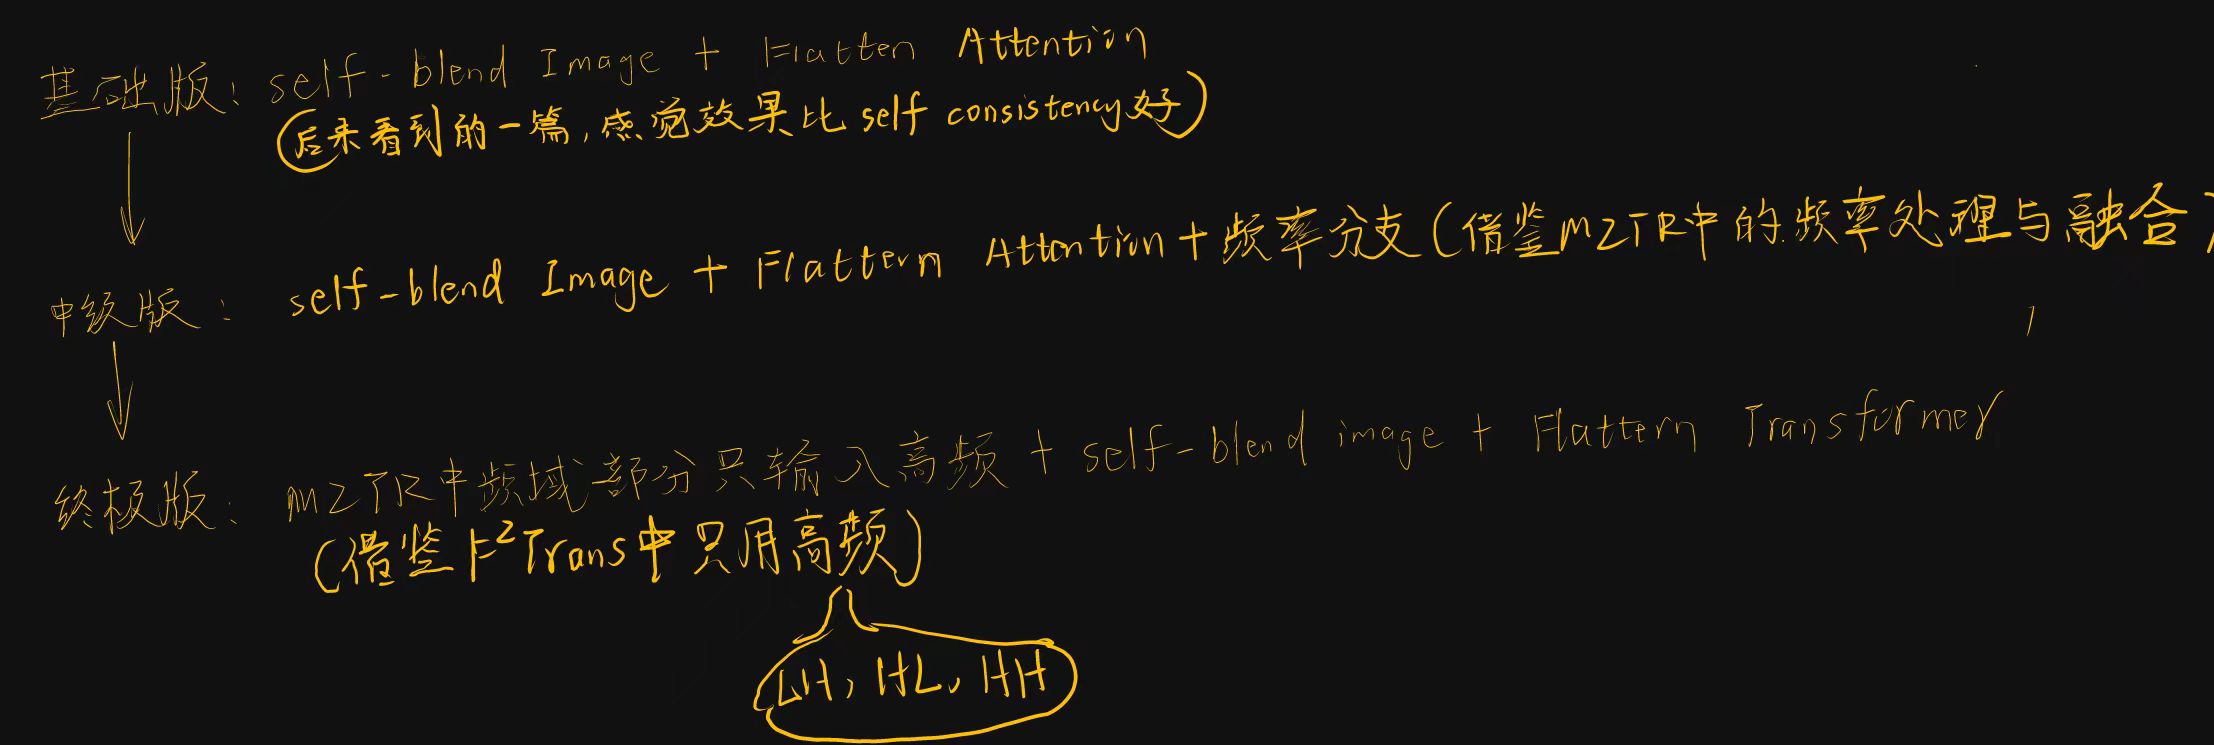 基础版: self-blend Image + Flatten Attention
(后来看到的一篇,感觉效果比 self consistency好)
中级版: self-blend Image + Flattern Attention + 频率分支(借鉴M2TR中的频率处理与融合)
终极版: M2TR中频域部分只输入高频 + self-blend image + Flattern Transformer
(借鉴F²Trans中只用高频)
LH, HL, HH